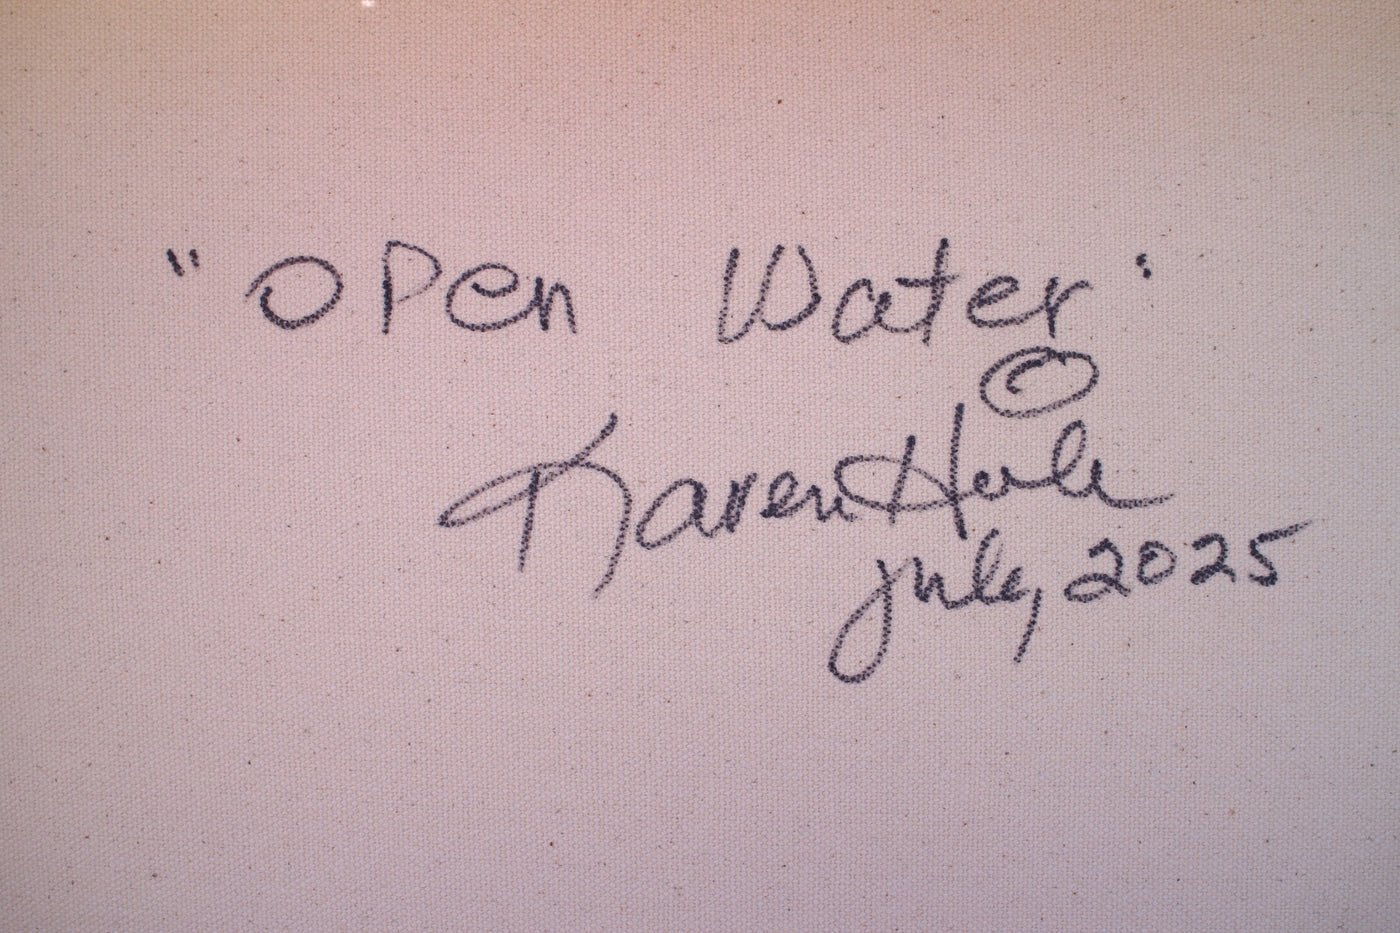 "Open Water"
©
Karen Hale
July, 2025